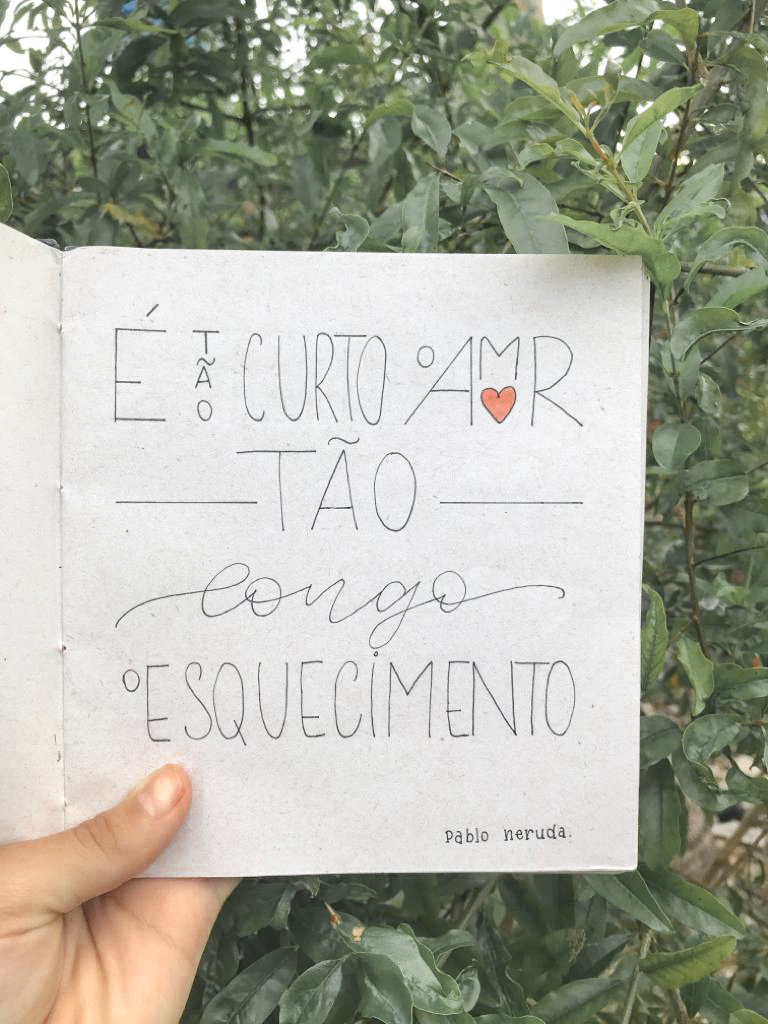 É TÃO CURTO O AM❤R
TÃO
longo
O ESQUECIMENTO
Pablo neruda.